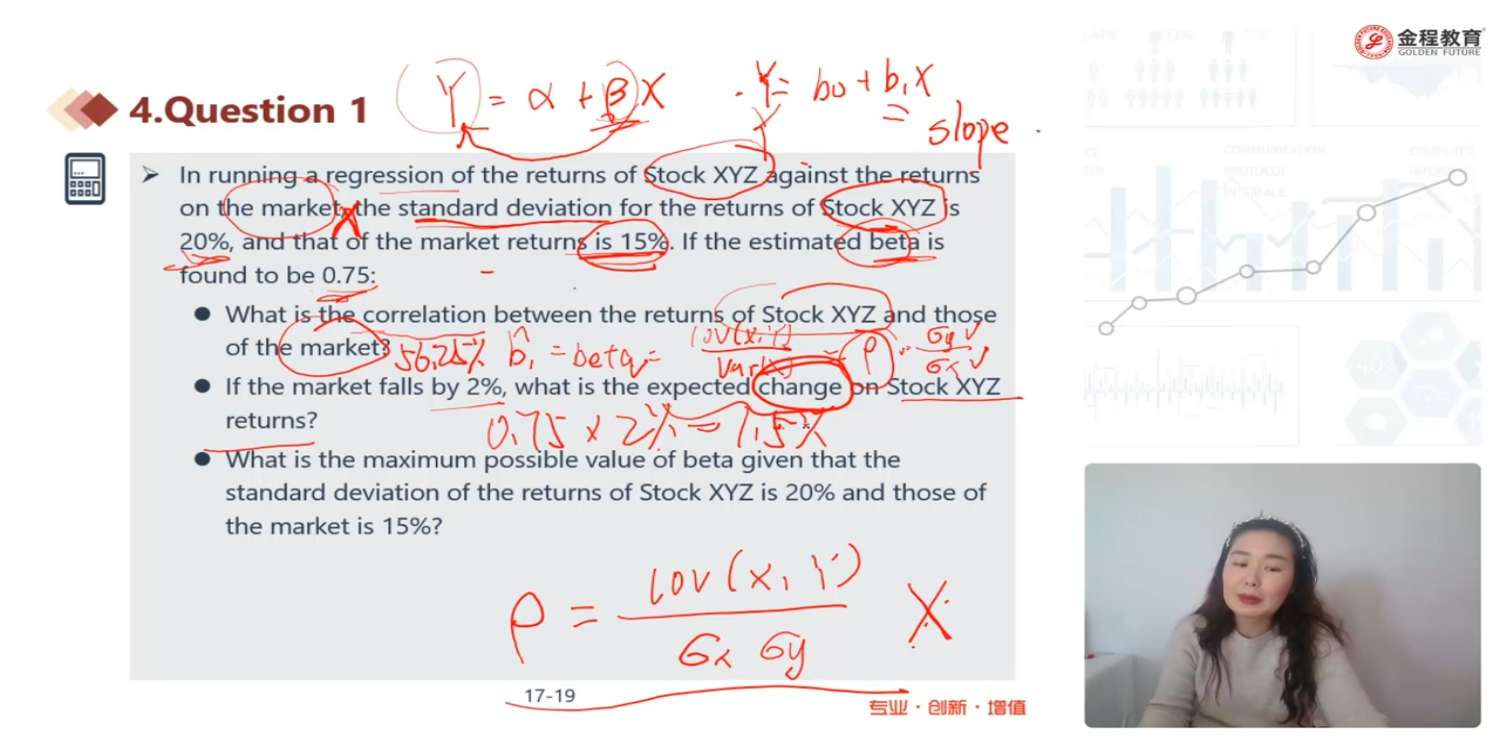 金程教育
GOLDEN FUTURE
4.Question 1
Y = α + βX
Y = b0 + b1X
slope
In running a regression of the returns of Stock XYZ against the returns
on the market, the standard deviation for the returns of Stock XYZ is
20%, and that of the market returns is 15%. If the estimated beta is
found to be 0.75:
What is the correlation between the returns of Stock XYZ and those
of the market?
56.25% b̂1 = beta = cov(x,y) / Var(x) = ρ · σy / σx
If the market falls by 2%, what is the expected change on Stock XYZ
returns?
0.75 × 2% = 1.5%
What is the maximum possible value of beta given that the
standard deviation of the returns of Stock XYZ is 20% and those of
the market is 15%?
ρ = cov(x, Y) / σx σy X
17-19
专业·创新·增值